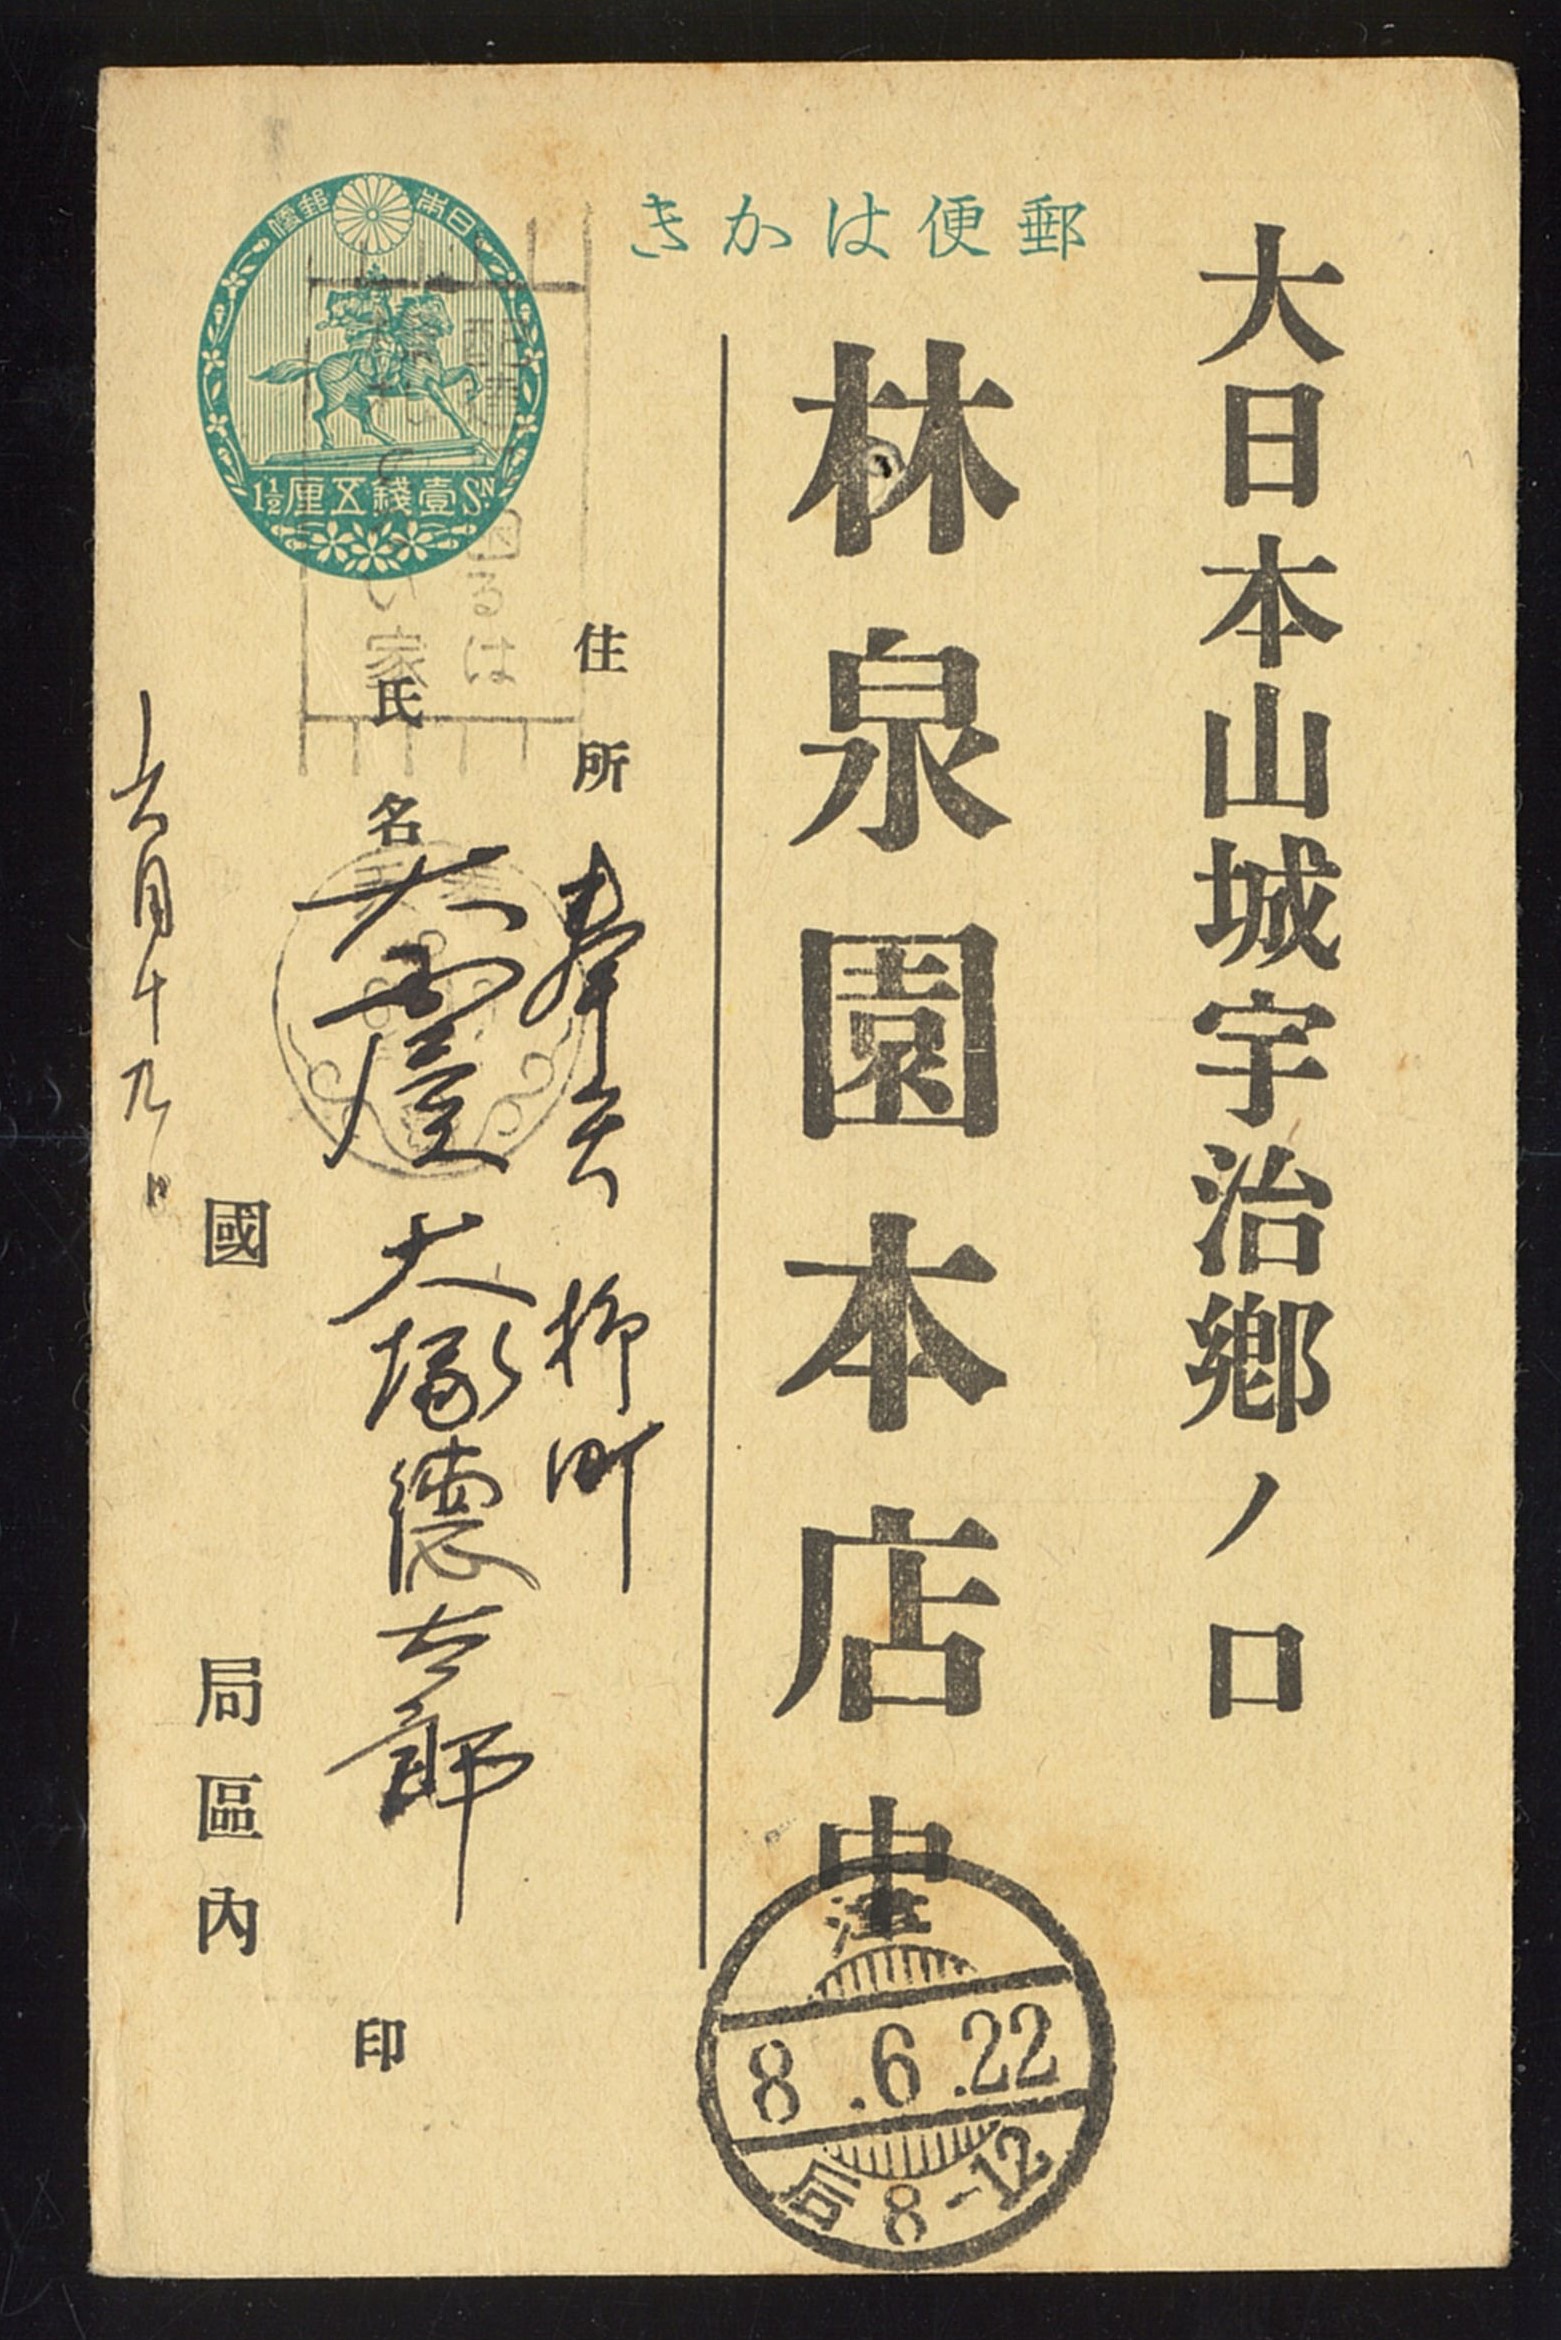 郵便はかき
日本郵便
壹錢五厘
1½ SN
大日本山城宇治郷ノ口
林泉園本店
住所
柳町
氏名
大塚德太郎
印
六月十九日
國
局區内
困るは
い家
8.6.22
局 8-12